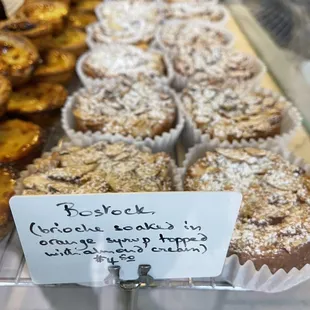 Bostock
(brioche soaked in
orange syrup topped
with almond cream)
$4.50